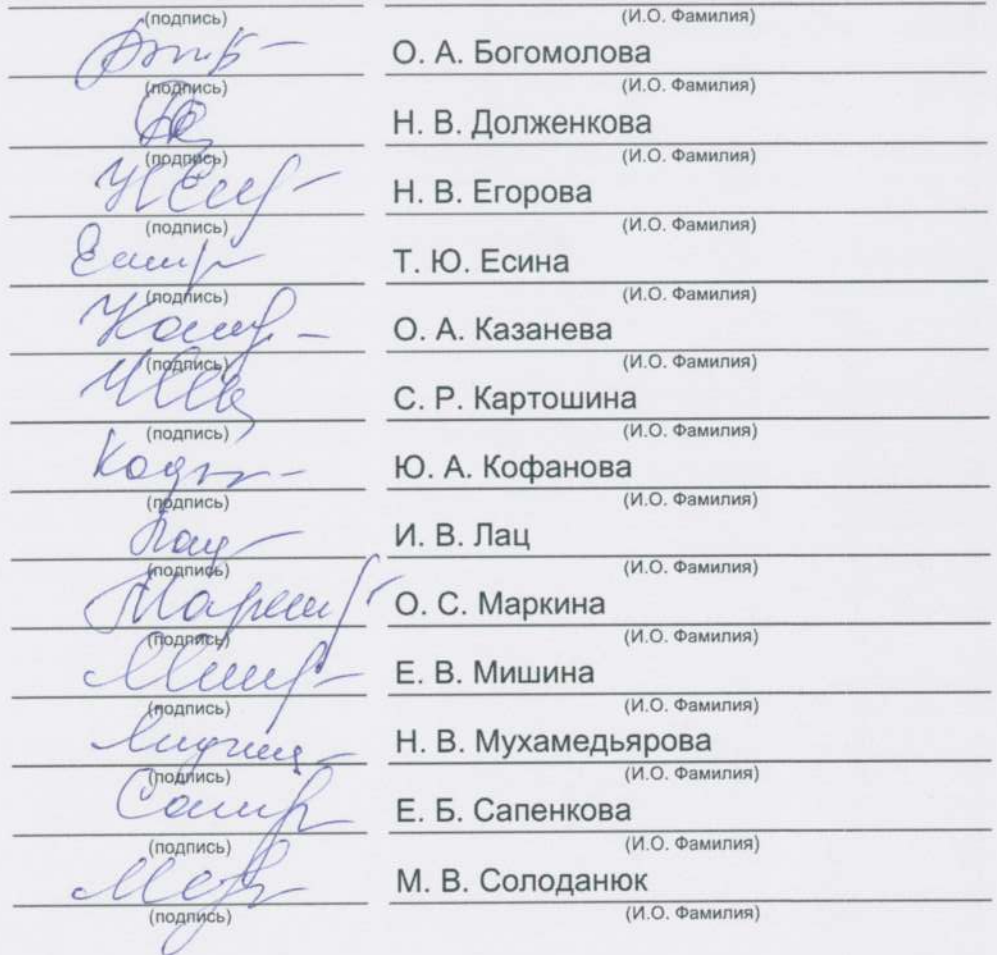 (подпись) (И.О. Фамилия)
О. А. Богомолова
(подпись) (И.О. Фамилия)
Н. В. Долженкова
(подпись) (И.О. Фамилия)
Н. В. Егорова
(подпись) (И.О. Фамилия)
Т. Ю. Есина
(подпись) (И.О. Фамилия)
О. А. Казанева
(подпись) (И.О. Фамилия)
С. Р. Картошина
(подпись) (И.О. Фамилия)
Ю. А. Кофанова
(подпись) (И.О. Фамилия)
И. В. Лац
(подпись) (И.О. Фамилия)
О. С. Маркина
(подпись) (И.О. Фамилия)
Е. В. Мишина
(подпись) (И.О. Фамилия)
Н. В. Мухамедьярова
(подпись) (И.О. Фамилия)
Е. Б. Сапенкова
(подпись) (И.О. Фамилия)
М. В. Солоданюк
(подпись) (И.О. Фамилия)